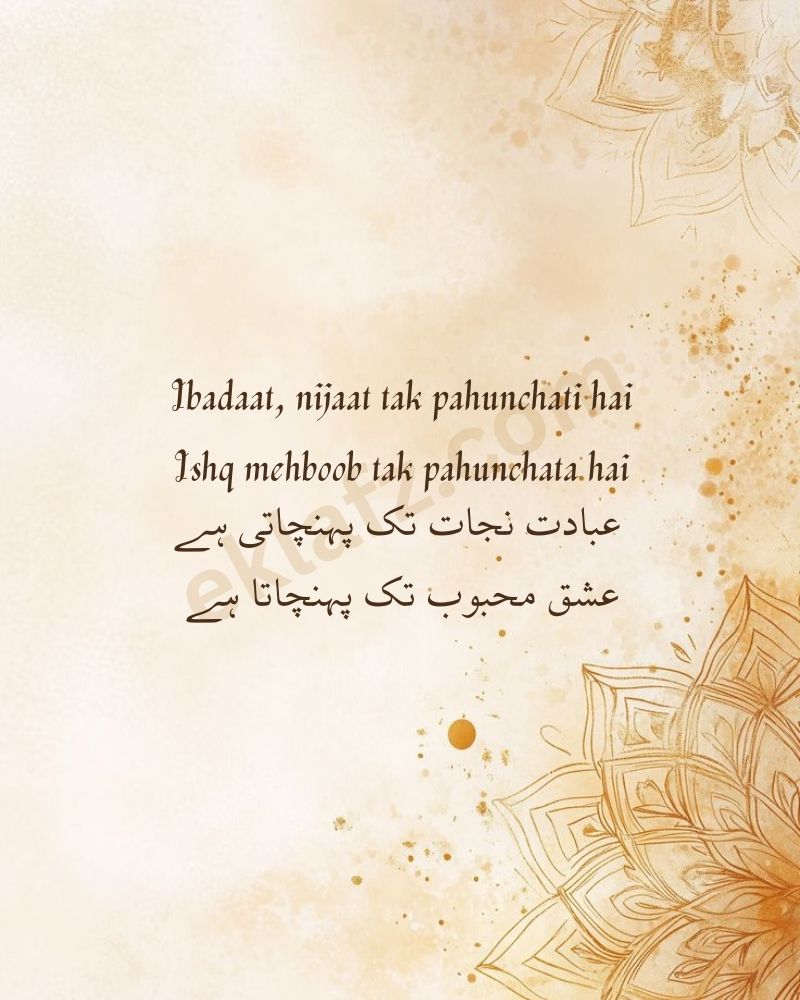 Ibadaat, nijaat tak pahunchati hai
Ishq mehboob tak pahunchata hai
عبادت نجات تک پہنچاتی ہے
عشق محبوب تک پہنچاتا ہے
eklatz.com